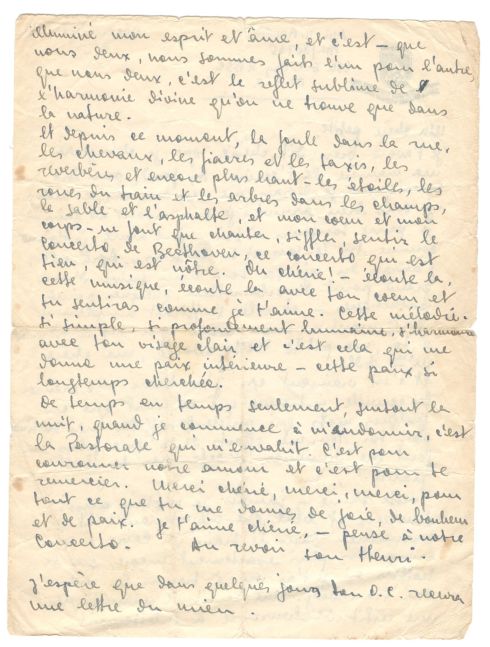 illuminé mon esprit et âme, et c'est – que
nous deux, nous sommes faits l'un pour l'autre,
que nous deux, c'est le reflet sublime de
l'harmonie divine qu'on ne trouve que dans
la nature.
Et depuis ce moment, la foule dans la rue,
les chevaux, les fiacres et les taxis, les
reverbères et encore plus haut – les étoiles, les
roues du train et les arbres dans les champs,
le sable et l'asphalte, et mon coeur et mon
corps – ne font que chanter, siffler, sentir le
Concerto de Beethoven, ce concerto qui est
tien, qui est nôtre. Oh chérie! – écoute la,
cette musique, écoute la avec ton coeur et
tu sentiras comme je t'aime. Cette mélodie.
si simple, si profondement humaine, s'harmonise
avec ton visage clair et c'est cela qui me
donne une paix intérieure – cette paix si
longtemps cherchée.
De temps en temps seulement, surtout la
nuit, quand je commence à m'endormir, c'est
la Pastorale qui m'envahit. C'est pour
couronner notre amour et c'est pour te
remercier. Merci chérie, merci, merci, pour
tout ce que tu me donnes de joie, de bonheur
et de paix. Je t'aime chérie, – pense à notre
Concerto. Au revoir ton Henri.
J'espère que dans quelques jours ton O.C. recevra
une lettre du mien.